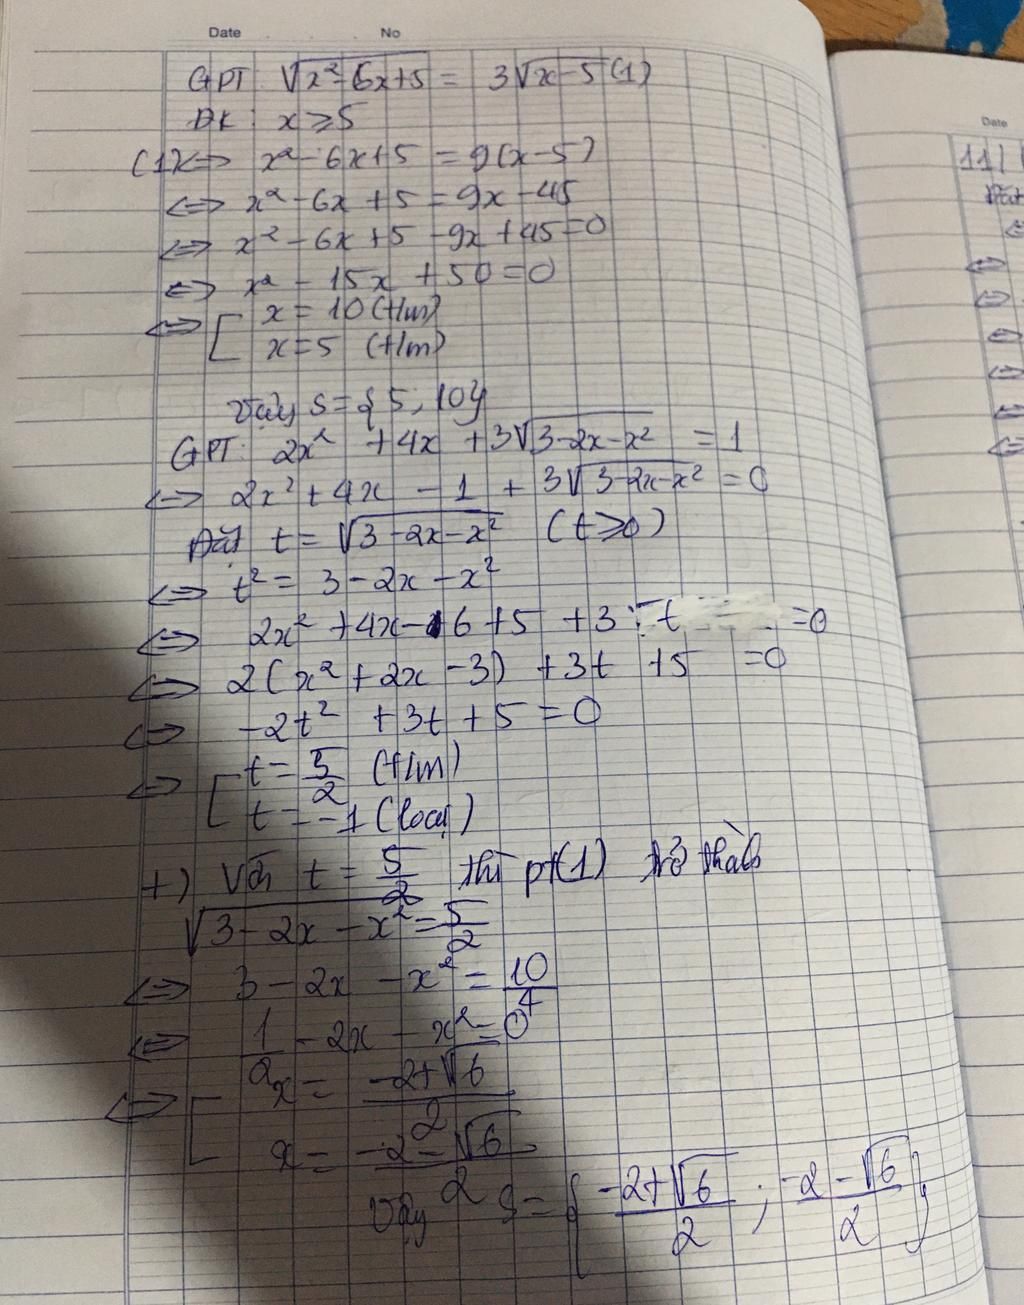 Date No
GPT: √x²-6x+5 = 3√x-5 (1)
ĐK: x ≥ 5
(1) <=> x² - 6x + 5 = 9(x-5)
<=> x² - 6x + 5 = 9x - 45
<=> x² - 6x + 5 - 9x + 45 = 0
<=> x² - 15x + 50 = 0
<=> [ x = 10 (t/m)
x = 5 (t/m)
Vậy S = { 5; 10 }
GPT: 2x² + 4x + 3√3-2x-x² = 1
<=> 2x² + 4x - 1 + 3√3-2x-x² = 0
Đặt t = √3-2x-x² (t ≥ 0)
<=> t² = 3 - 2x - x²
<=> 2x² + 4x - 6 + 5 + 3t = 0
<=> 2(x² + 2x - 3) + 3t + 5 = 0
<=> -2t² + 3t + 5 = 0
<=> [ t = 5/2 (t/m)
t = -1 (loại)
+) Với t = 5/2 thì pt(1) trở thành
√3-2x-x² = 5/2
<=> 3 - 2x - x² = 10/4
<=> 1/2 - 2x - x² = 0
<=> [ x = -2+√6/2
x = -2-√6/2
Vậy S = { -2+√6/2 ; -2-√6/2 }
Date
11)
Đặt
<=>
<=>
<=>
<=>
<=>
<=>
<=>